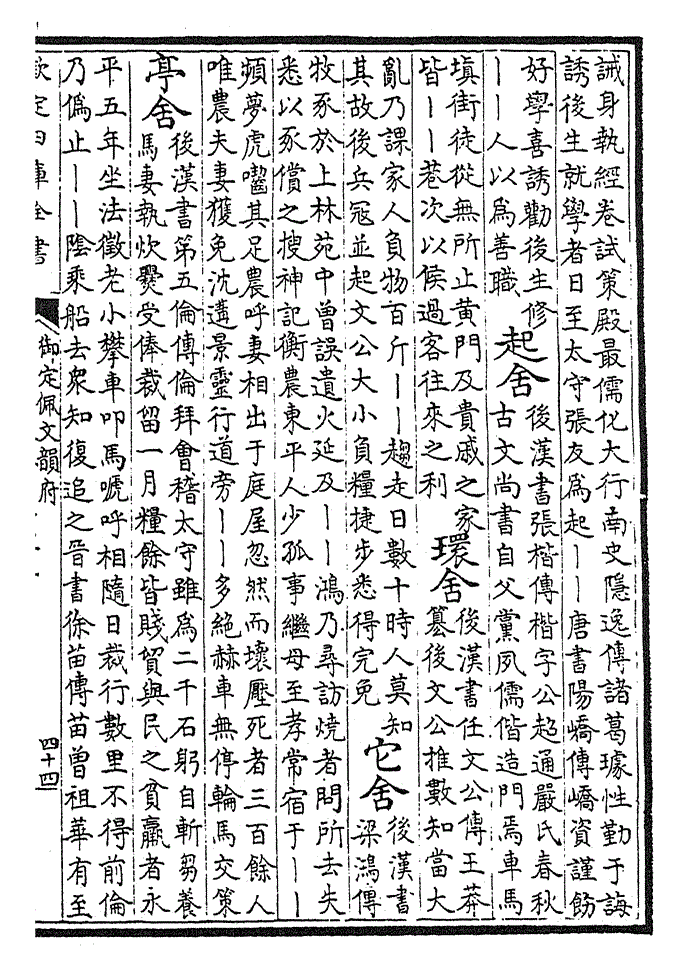 誡身執經卷試策殿最儒化大行南史隱逸傳諸葛璩性勤于誨
誘後生就學者日至太守張友為起丨丨唐書陽嶠傳嶠資謹飭
好學喜誘勸後生修
丨丨人以為善職
起舍
後漢書張楷傳楷字公超通嚴氏春秋
古文尚書自父黨夙儒偕造門焉車馬
填街徒從無所止黃門及貴戚之家
皆丨丨巷次以候過客往來之利
環舍
後漢書任文公傳王莽
篡後文公推數知當大
亂乃課家人負物百斤丨丨趨走日數十時人莫知
其故後兵寇並起文公大小負糧捷步悉得完免
它舍
後漢書
梁鴻傳
牧豕於上林苑中曾誤遺火延及丨丨鴻乃尋訪燒者問所去失
悉以豕償之搜神記衡農東平人少孤事繼母至孝常宿于丨丨
頻夢虎嚙其足農呼妻相出于庭屋忽然而壞壓死者三百餘人
唯農夫妻獲免沈遘景靈行道旁丨丨多絕赫車無停輪馬交策
亭舍
後漢書第五倫傳倫拜會稽太守雖為二千石躬自斬芻養
馬妻執炊爨受俸裁留一月糧餘皆賤貿與民之貧羸者永
平五年坐法徵老小攀車叩馬嗁呼相隨日裁行數里不得前倫
乃偽止丨丨陰乘船去衆知復追之晉書徐苗傳苗曾祖華有至
欽定四庫全書
御定佩文韻府
四十四